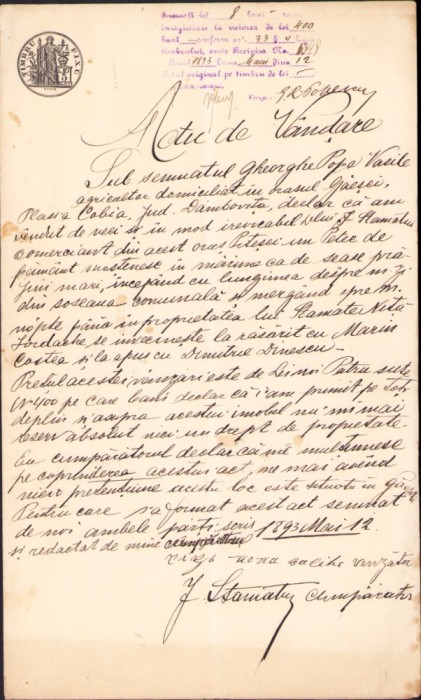 TIMBRU FIXU
8
înregistrate la valórea de lei 400
conform art. 33
timbrului, emis Recipisa No.
Anul 1893 Luna Maiu Ziua 12
original pe timbru de lei
G. R. Popescu
Actu de Vândare
Sub semnatul Gheorghe Popa Vasile
agricultor domiciliat în orasul Găesci,
Plassa Cobia, Jud. Dâmbovita, declar că am
vândut de veci si in mod irevocabil D-lui J. Stamatiu
comerciant din acest oras Pitesci un Petec de
pământ mostenesc in mărime ca de sease pră-
jini mari, incepând cu lungimea despre
din soseaua comunală si mergând spre mi-
nopte păna in proprietatea lui Stamate Nită
Iordache se invecineste la răsărit cu Marin
Costea si la apus cu Dimitrie Dinescu —
Pretul acestei vânzari este de Lei noi Patru sute
No 400 pe care bani declar că i-am primit pe toti
deplin si asupra acestui imobil nu 'mi mai
reserv absolut nici un drept de proprietate
Eu cumpărătorul declar că mĕ multumesc
pe coprinderea acestui act, ne mai avênd
nicio pretentiune acestu loc este situatu in Găesci
Pentru care s'a format acest act semnat
de noi ambele parti scris 1893 Mai 12.
si redactat de mine
попа vendător
J Stamatiu cumpărător